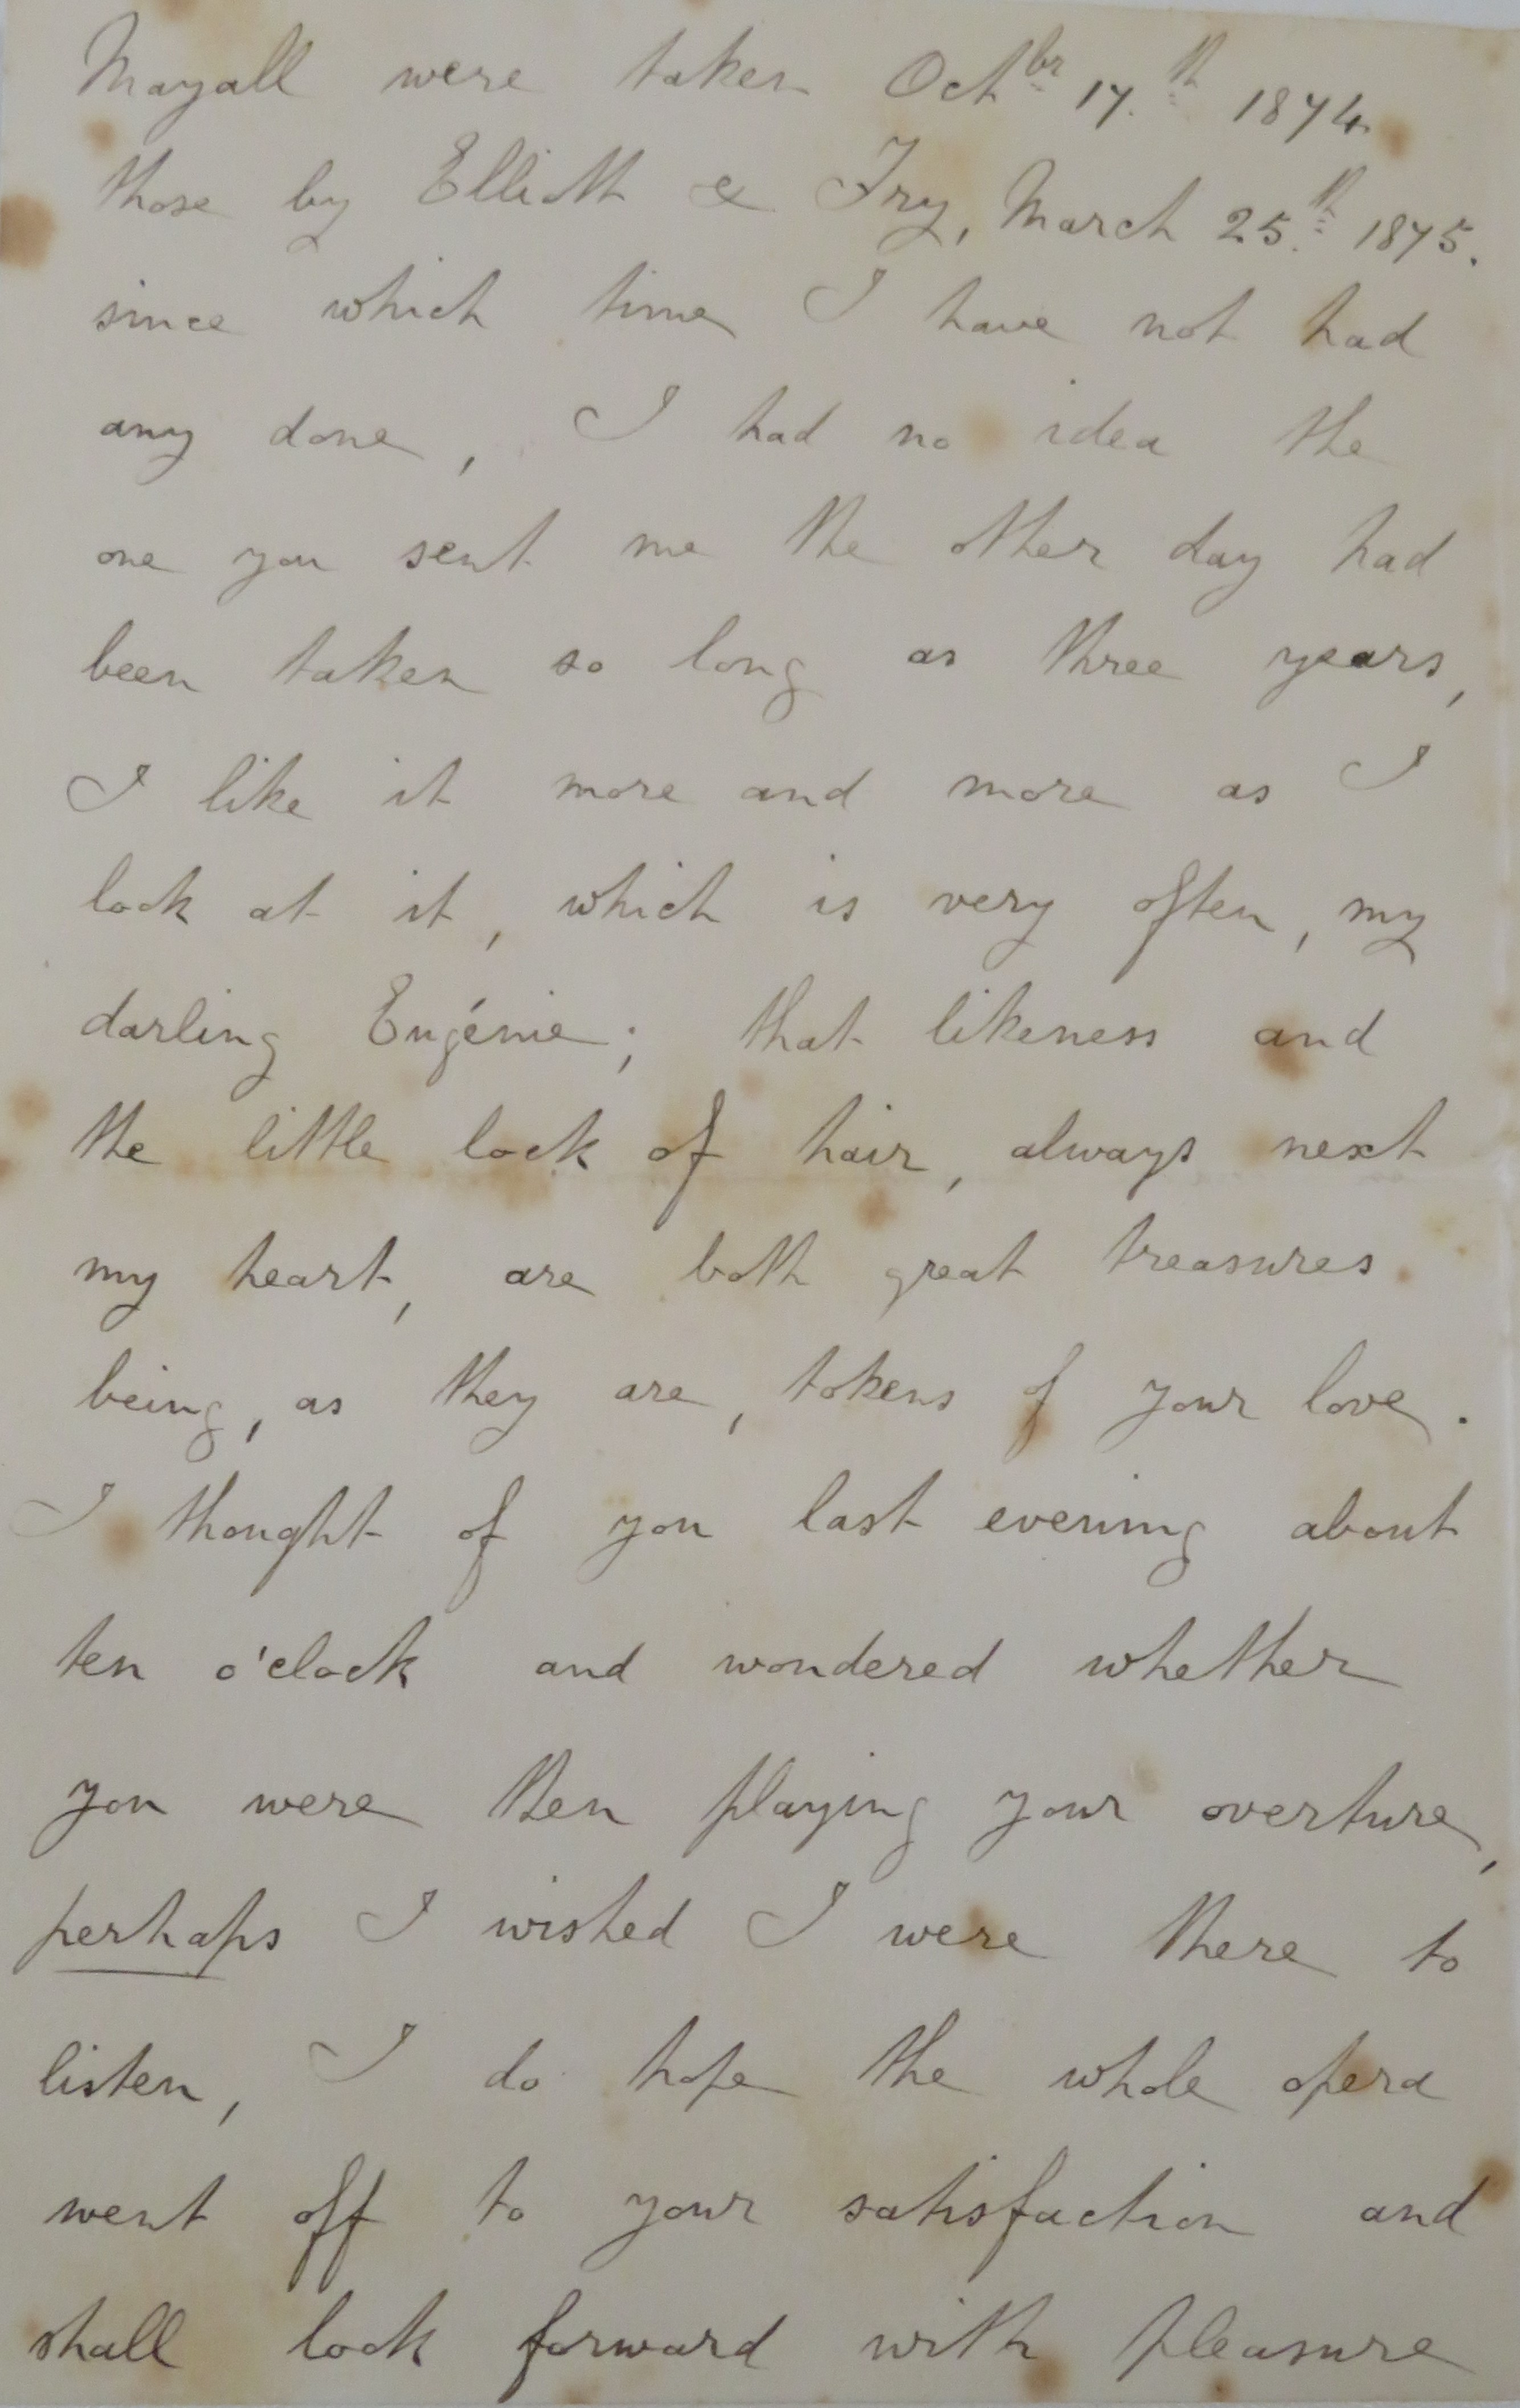 Mayall were taken Oct.br 17.th 1874.
those by Elliott & Fry, March 25.th 1875.
since which time I have not had
any done, I had no idea the
one you sent me the other day had
been taken so long as three years,
I like it more and more as I
look at it, which is very often, my
darling Eugénie; that likeness and
the little lock of hair, always next
my heart, are both great treasures
being, as they are, tokens of your love.
I thought of you last evening about
ten o'clock and wondered whether
you were then playing your overture,
perhaps I wished I were there to
listen, I do hope the whole opera
went off to your satisfaction and
shall look forward with pleasure